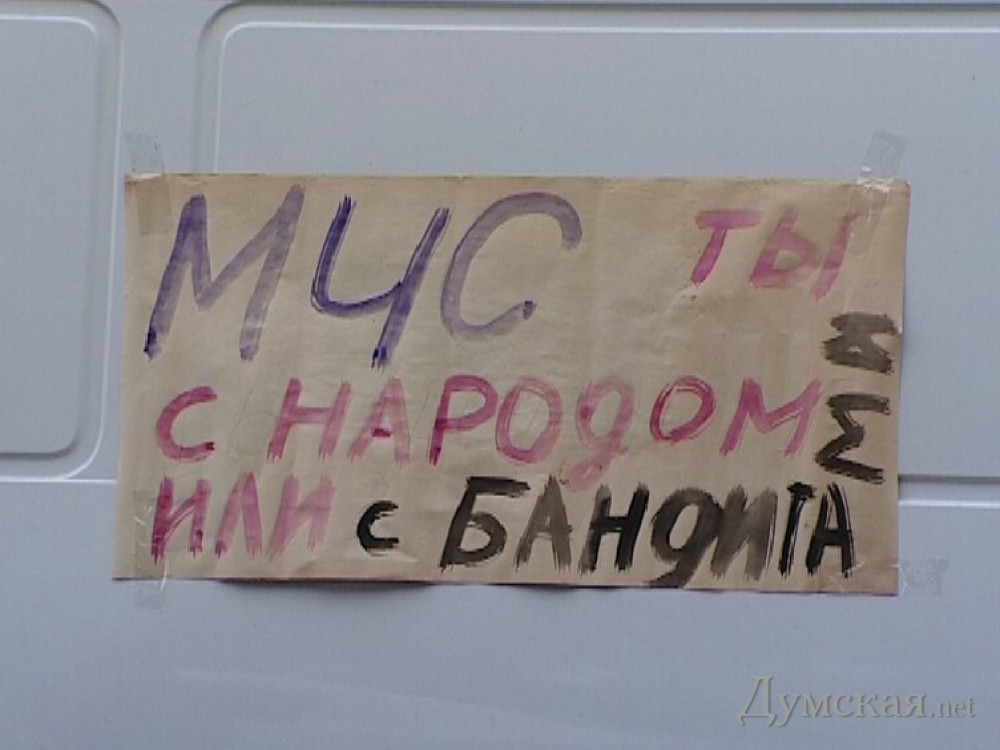 МЧС ТЫ
С НАРОДОМ
ИЛИ С БАНДИТАМИ
Думская.net